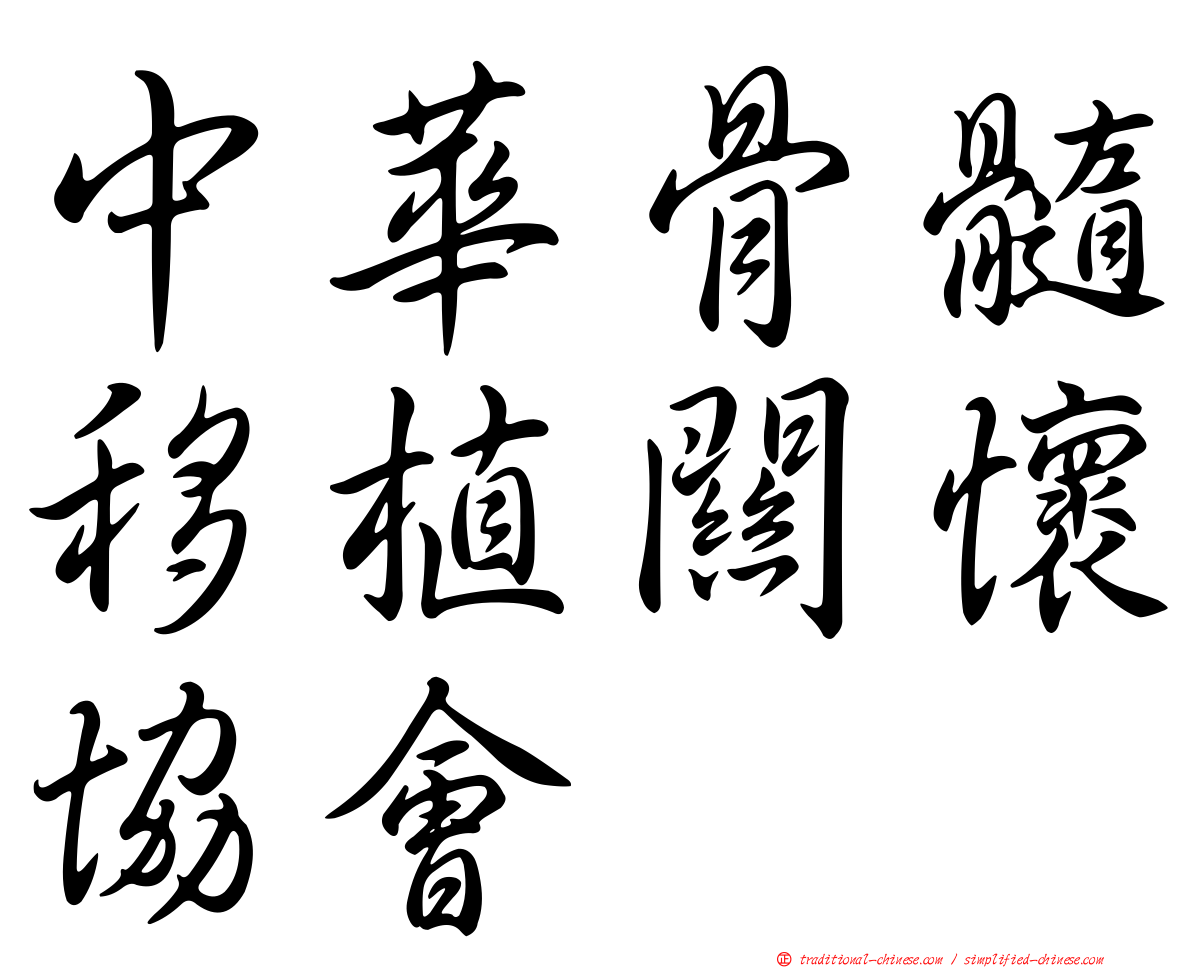 中華骨髓
移植關懷
協會
㊣ traditional-chinese.com / simplified-chinese.com